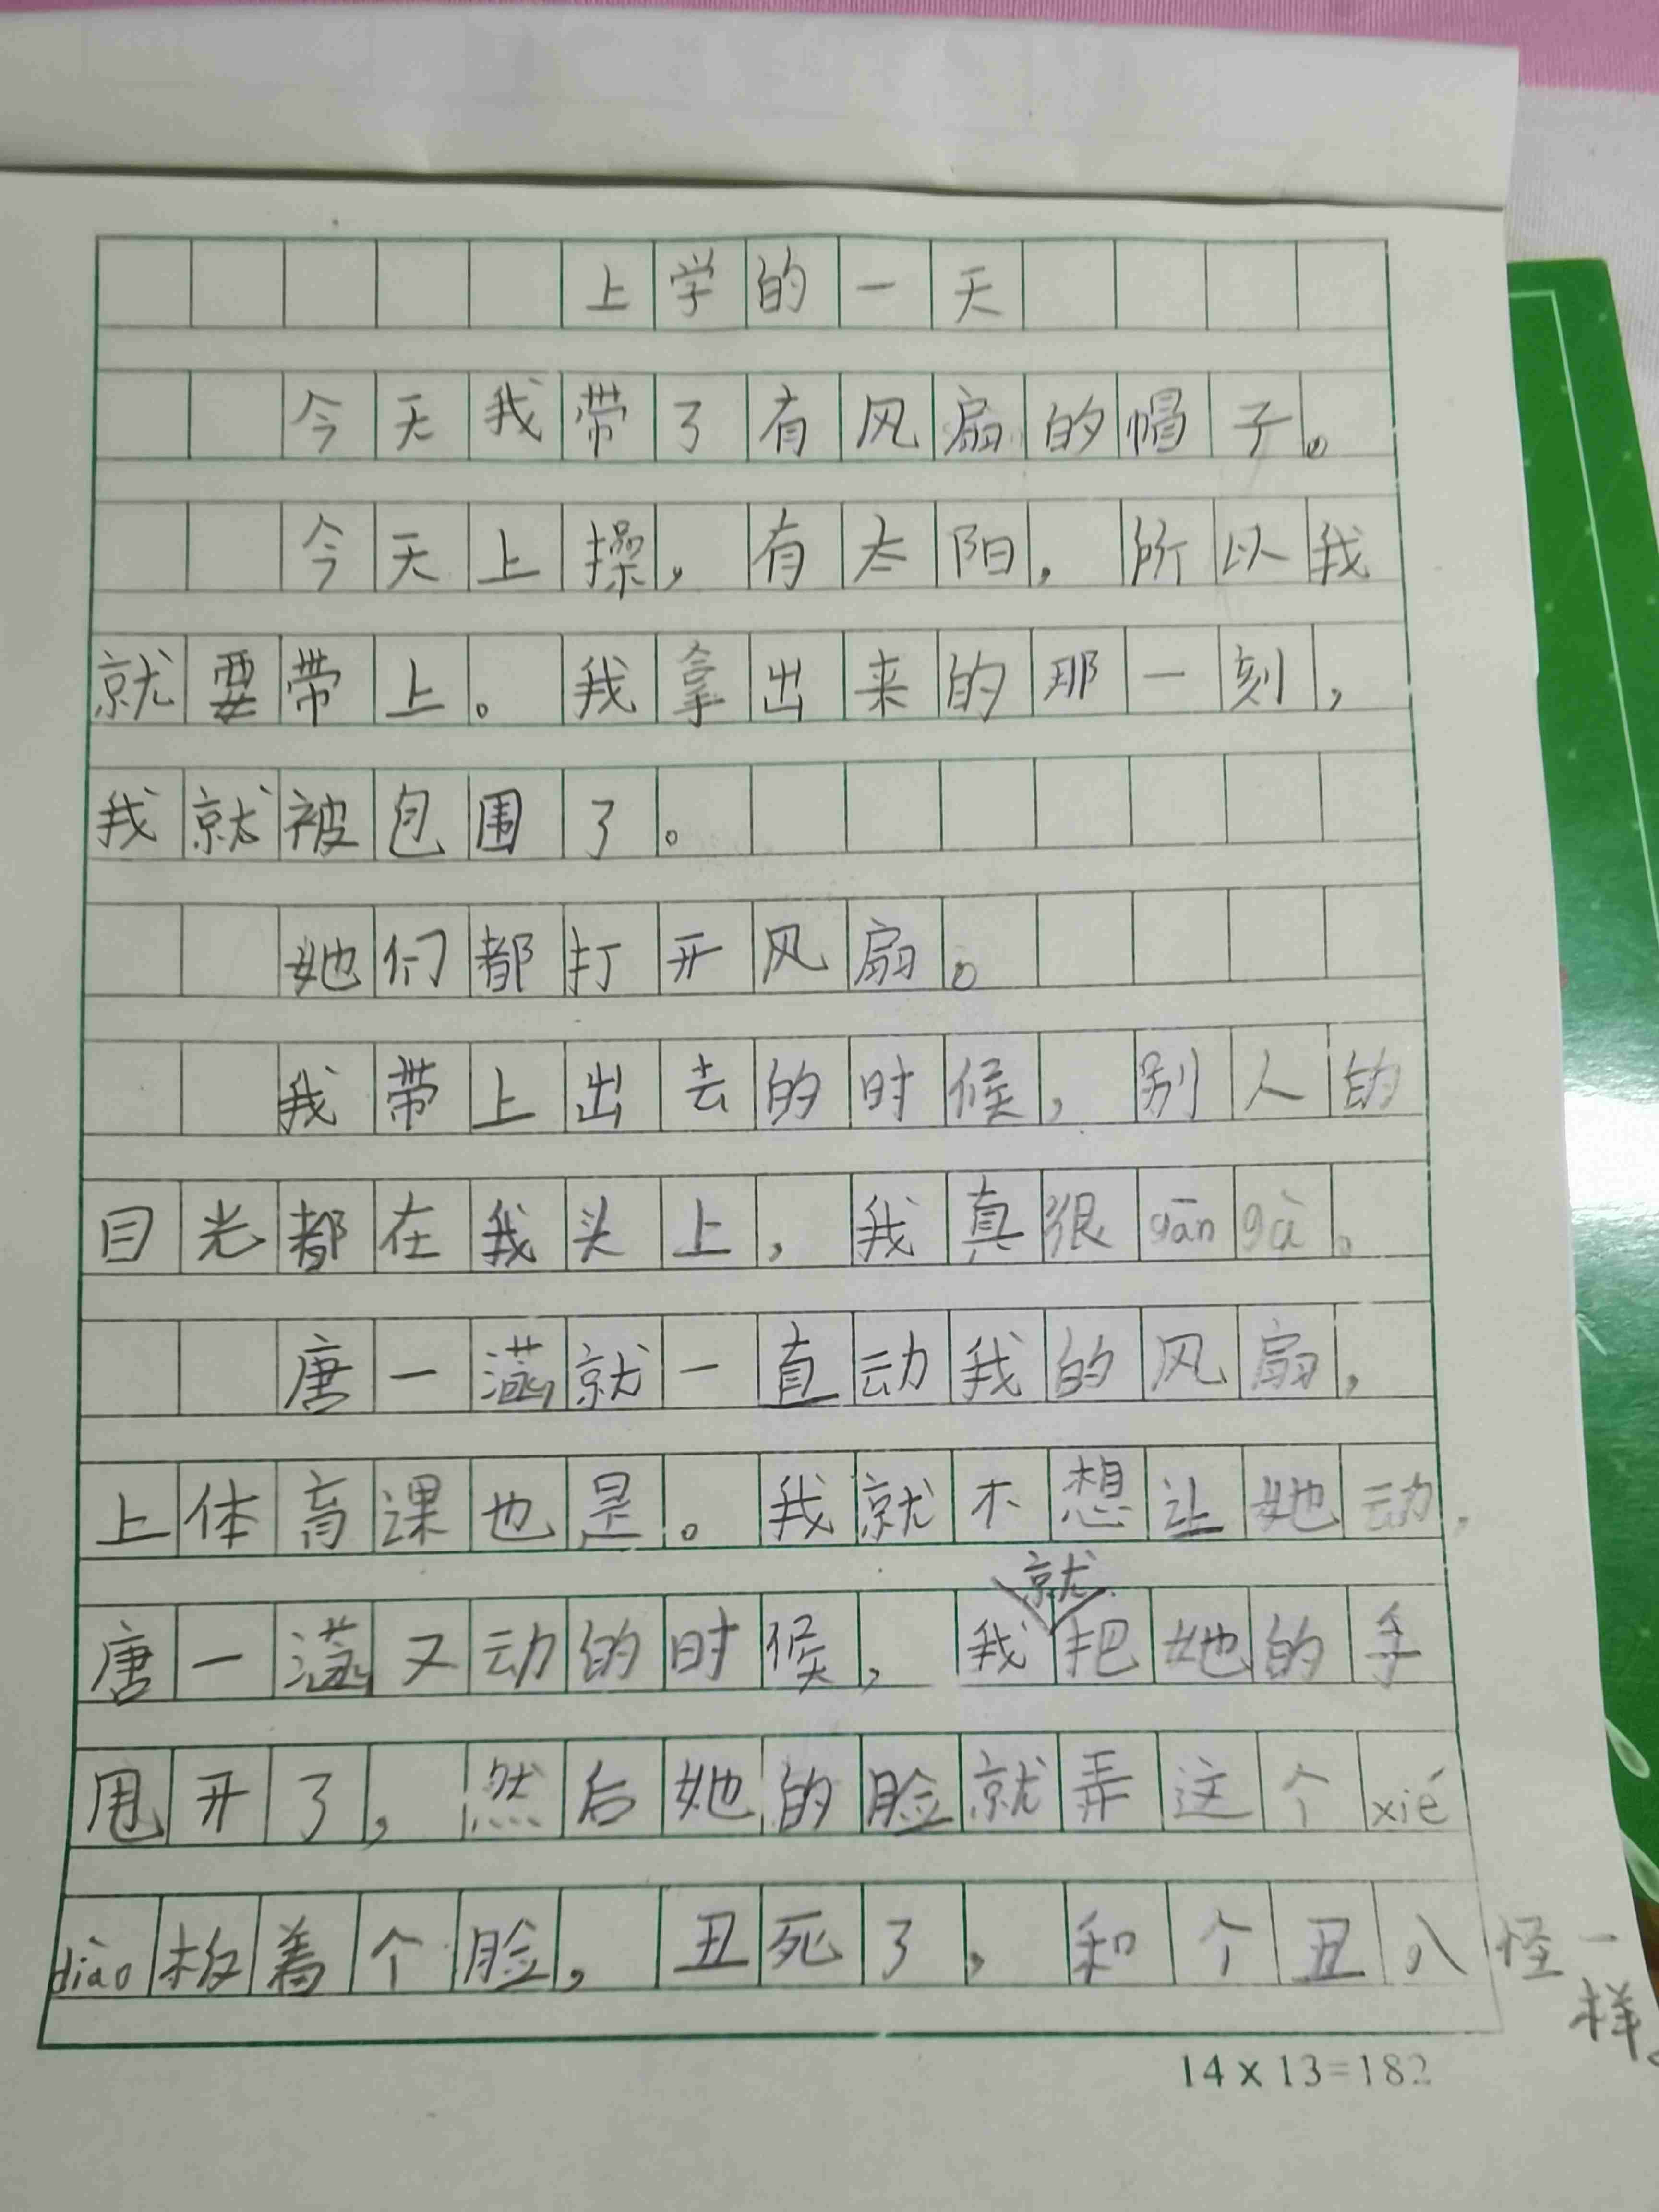 上学的一天
今天我带了有风扇的帽子。
今天上操，有太阳，所以我
就要带上。我拿出来的那一刻，
我就被包围了。
她们都打开风扇。
我带上出去的时候，别人的
目光都在我头上，我真很gān gà。
唐一涵就一直动我的风扇，
上体育课也是。我就不想让她动，
唐一涵又动的时候，我就把她的手
甩开了，然后她的脸就弄这个xié
diào板着个脸，丑死了，和个丑八怪一
样。
14×13=182